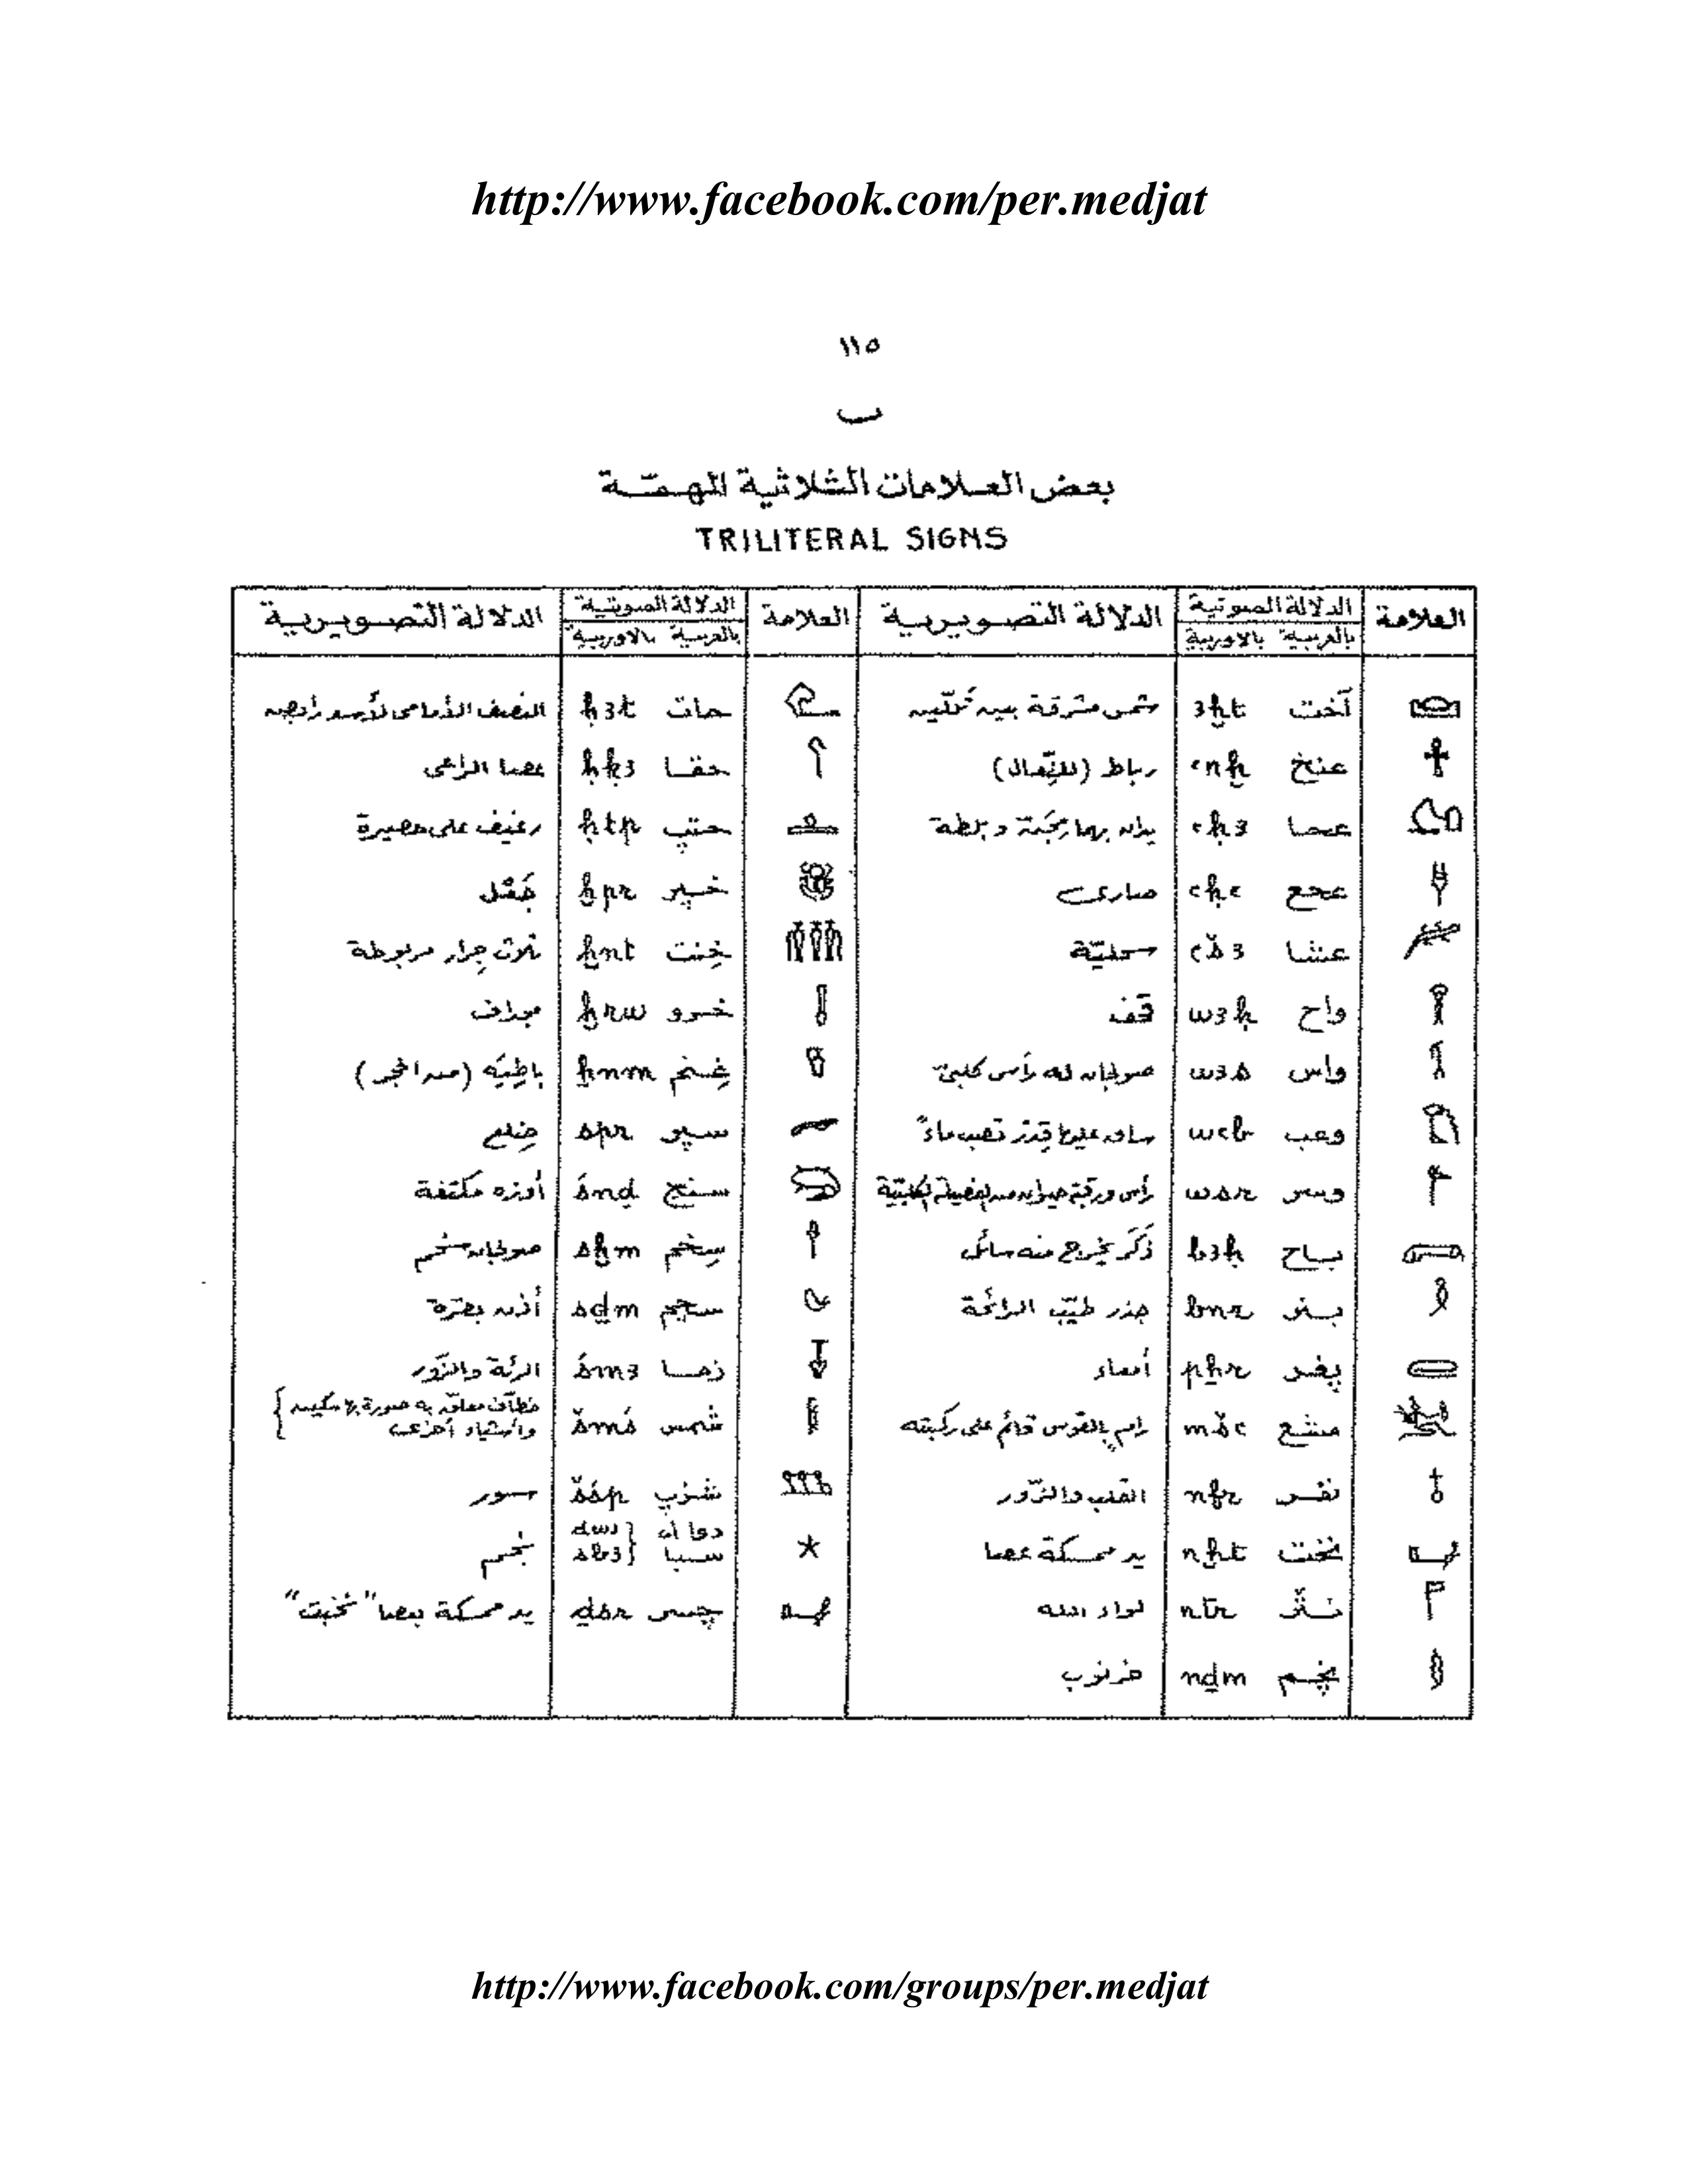 http://www.facebook.com/per.medjat
١١٥
ب
بعض العلامات الثلاثية المهمّة
TRILITERAL SIGNS
العلامة الدلالة الصوتية الدلالة التصويرية العلامة الدلالة الصوتية الدلالة التصويرية
بالعربية بالاوربية بالعربية بالاوربية
آخت 3ḫt شمس مشرقة بين تلّين حات ḥ3t النصف الأمامى لأسد رابض
عنخ ꜥnḫ رباط (للنِّعال) حقا ḥḳ3 عصا الراعى
عحا ꜥḥ3 يدان بهما مِجَنّة وبلطة حتپ ḥtp رغيف على حصيرة
عحع ꜥḥꜥ صارى خپر ḫpr جُعَل
عشا ꜥš3 سحليّة خنت ḫnt ثلاث جِرار مربوطة
واح w3ḥ خرو ḫrw مجداف
واس w3s صولجان له رأس كلبىّ غنم ẖnm باطِيَه (من الحجر)
وعب wꜥb ساق عليها قِدر تصب ماءً سپر spr ضِلع
وسر wsr رأس ورقبة حيوان من الفصيلة الكلبيّة سنج śnḏ أوزه مكتفة
باح b3ḥ ذَكَر يخرج منه سائل سِخم sḫm صولجان سخم
بنر bnr جذر طيّب الرائحة سجم sḏm أذن بقرة
پخر pẖr أمعاء زما śm3 الرئة والزّور
مشع mšꜥ رامٍ بالقوس قائم على ركبته شمس šmś خطّاف معلّق به صورة بها سكين
وأشياء أخرى
نفر nfr القلب والزّور شزپ šśp سور
نخت nḫt يد ممسكة عصا دوا أو dw3
سبا sb3 نجم
نثر nṯr لواء الله چسر ḏsr يد ممسكة بعصا "نخبت"
نچم nḏm خرنوب
http://www.facebook.com/groups/per.medjat